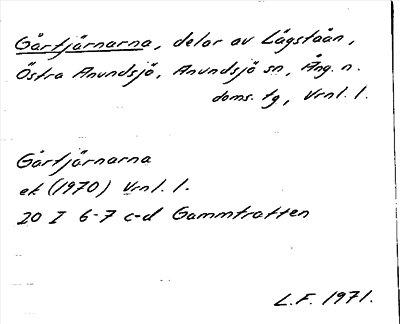 Gårtjärnarna, delar av Lägstaån,
Östra Anundsjö, Anundsjö sn, Ång. n.
doms. tg, Vrnl. l.
Gårtjärnarna
ek (1970) Vrnl. l.
20 I 6-7 c-d Gammtratten
L.F. 1971.